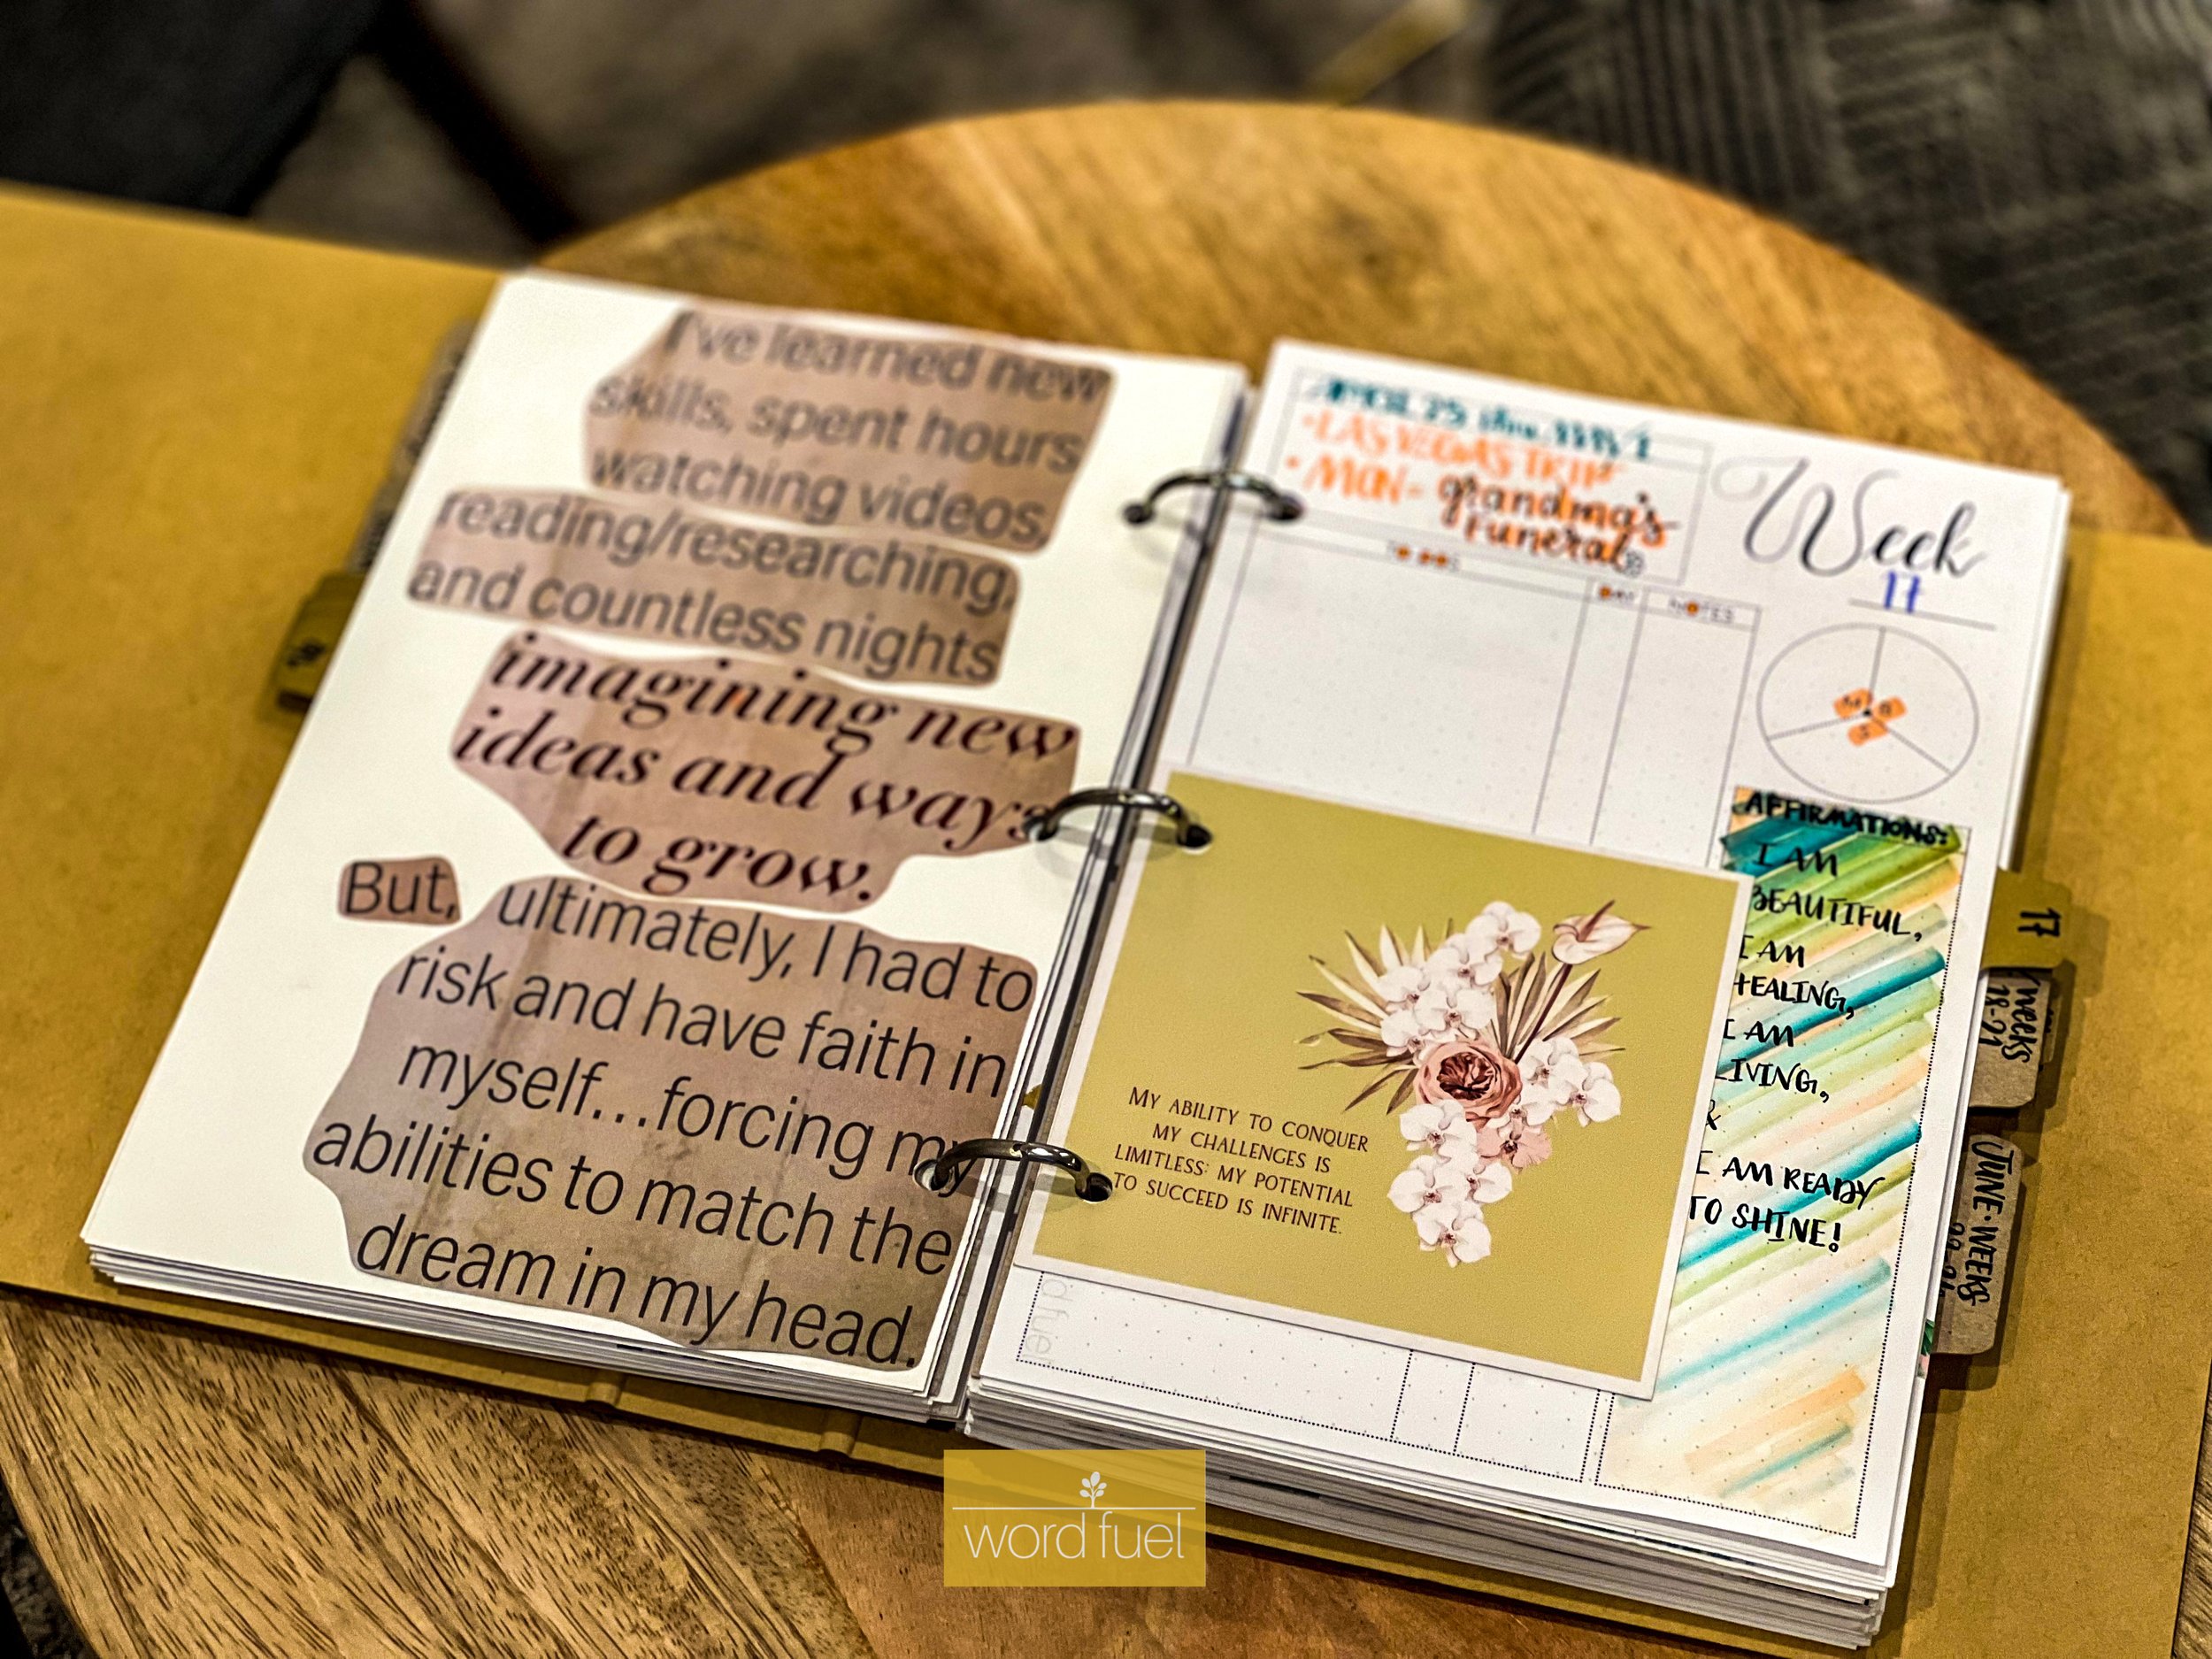 I've learned new
skills, spent hours
watching videos,
reading/researching,
and countless nights
imagining new
ideas and ways
to grow.
But, ultimately, I had to
risk and have faith in
myself...forcing my
abilities to match the
dream in my head.
APRIL 25 thru MAY 1
•LAS VEGAS TRIP
•MON- grandma's
Funeral
Week
17
NOTES
AFFIRMATIONS:
I AM
BEAUTIFUL,
I AM
HEALING,
I AM
LIVING,
&
I AM READY
TO SHINE!
MY ABILITY TO CONQUER
MY CHALLENGES IS
LIMITLESS; MY POTENTIAL
TO SUCCEED IS INFINITE.
d fuel
17
weeks
18-21
JUNE • WEEKS
word fuel